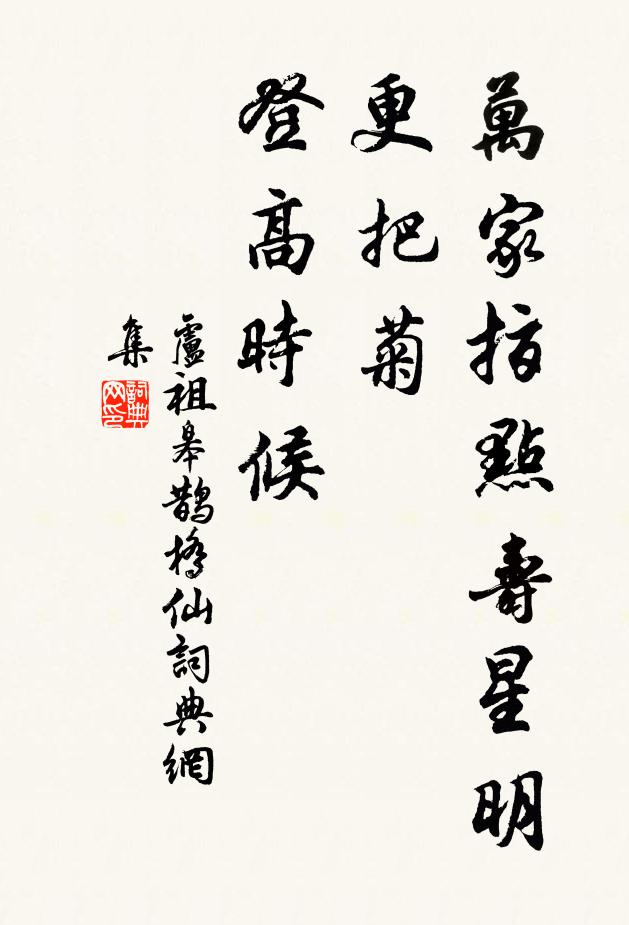 萬家指點壽星明
更把菊
登高時候
盧祖皋鵲橋仙詞典網
集
詞典
网印